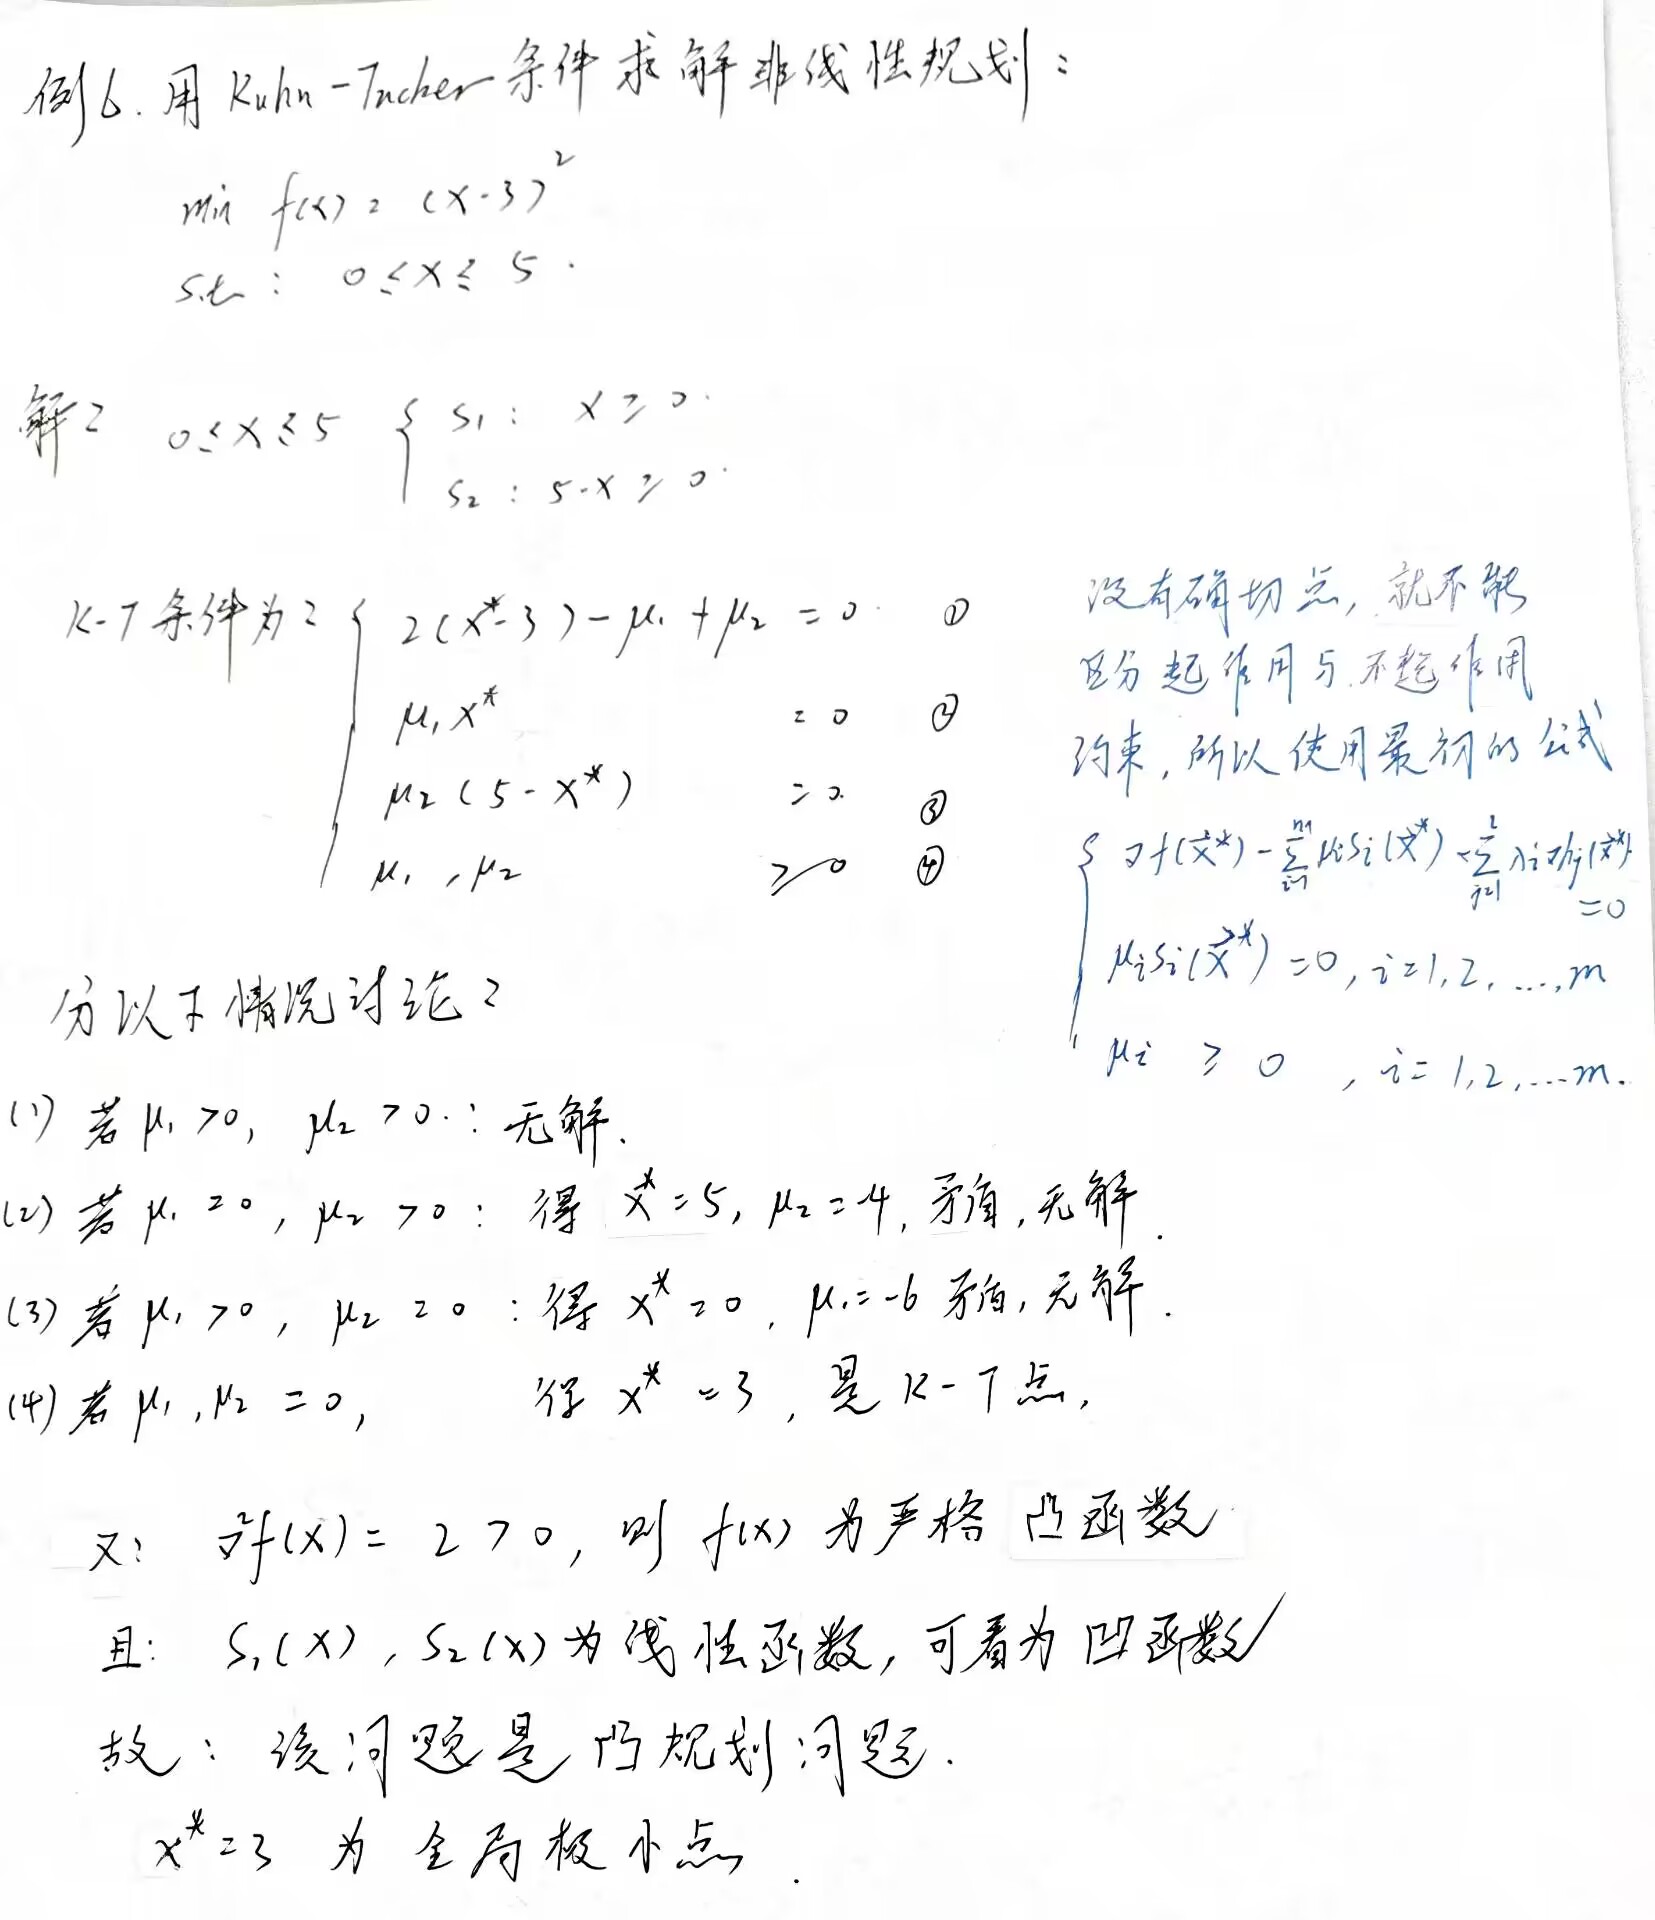 例6. 用 Kuhn-Tucker 条件求解非线性规划:
min f(x) = (x-3)²
s.t: 0 ≤ x ≤ 5.
解: 0 ≤ x ≤ 5 { S₁: x ≥ 0.
S₂: 5-x ≥ 0.
K-T 条件为: { 2(x*-3) - μ₁ + μ₂ = 0 ①
μ₁x* = 0 ②
μ₂(5-x*) = 0. ③
μ₁, μ₂ ≥ 0 ④
没有确切点, 就不能
区分起作用与不起作用
约束, 所以使用最初的公式
{ ∇f(x⃗*) - Σᵢ₌₁ᵐ μᵢSᵢ(x⃗*) - Σⱼ₌₁ˡ λᵢ∇hⱼ(x⃗*)
=0
μᵢSᵢ(x⃗*) = 0, i=1,2,...,m
μᵢ ≥ 0, i=1,2,...m.
分以下情况讨论:
(1) 若 μ₁>0, μ₂>0.: 无解.
(2) 若 μ₁=0, μ₂>0: 得 x*=5, μ₂=-4, 矛盾, 无解.
(3) 若 μ₁>0, μ₂=0: 得 x*=0, μ₁=-6 矛盾, 无解.
(4) 若 μ₁, μ₂=0, 得 x*=3, 是 K-T 点,
又: ∇²f(x) = 2 > 0, 则 f(x) 为严格凸函数
且: S₁(x), S₂(x) 为线性函数, 可看为凹函数
故: 该问题是凸规划问题.
x*=3 为全局极小点.